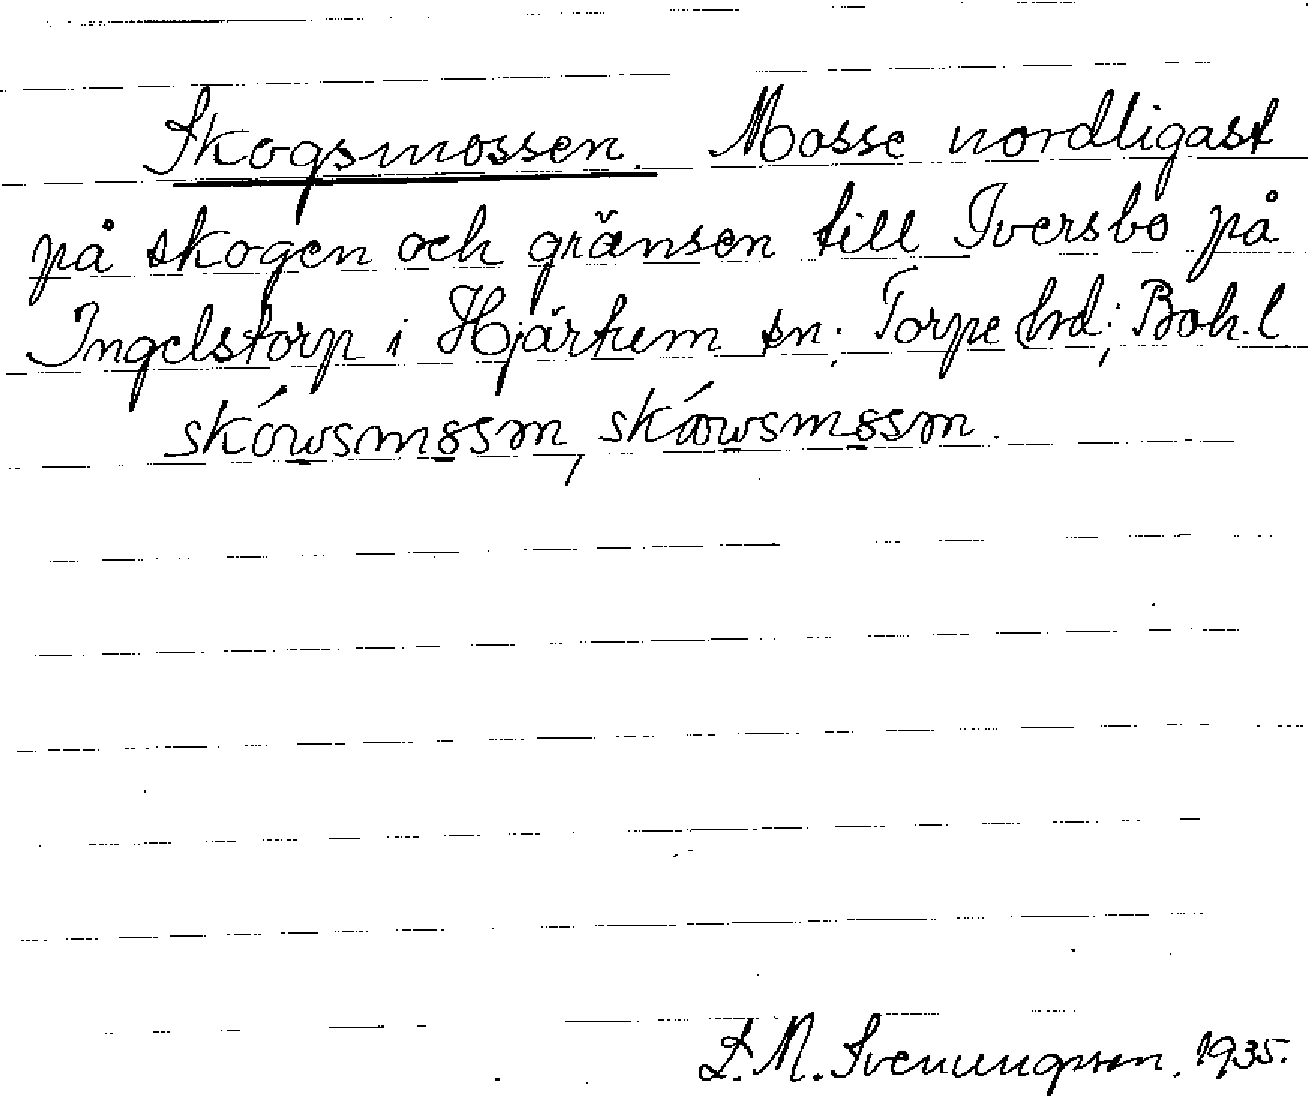 Skogsmossen. Mosse nordligast
på skogen och gränsen till Iversbo på
Ingelstorp i Hjärtum sn; Torpe hd; Boh.l
skówsmossm, skáowsmossm.
L.M. Svenungsson. 1935.